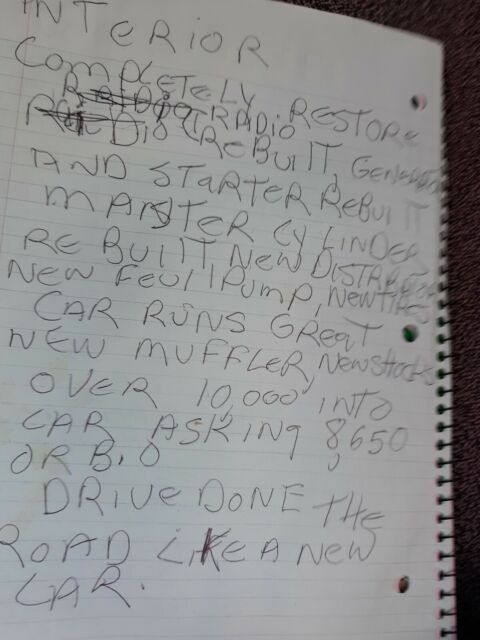 INTERIOR
COMPLETELY RESTORE
RADIO
RADIO REBUILT, GENERATOR
AND STARTER REBUILT
MASTER CYLINDER
REBUILT NEW DISTRIBUTOR
NEW FEUL PUMP, NEW TIRES
CAR RUNS GREAT
NEW MUFFLER, NEW SHOCKS
OVER 10,000 INTO
CAR ASKING 8,650
OR B.O
DRIVE DONE THE
ROAD LIKE A NEW
CAR.